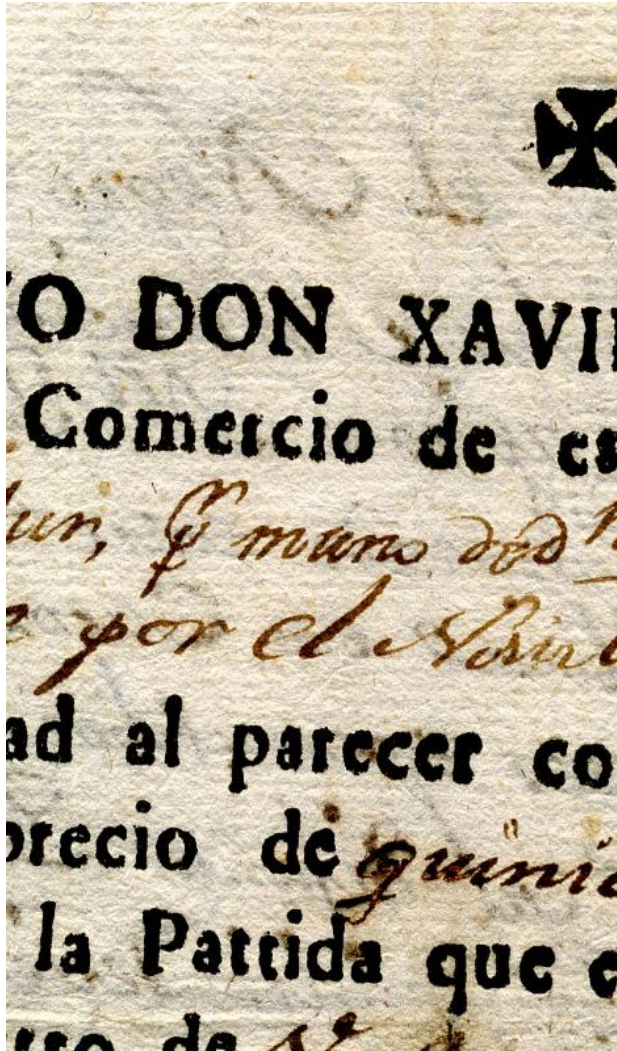 ✠
YO DON XAVI
Comercio de es
por el
ad al parecer co
precio de quini
la Partida que e
de